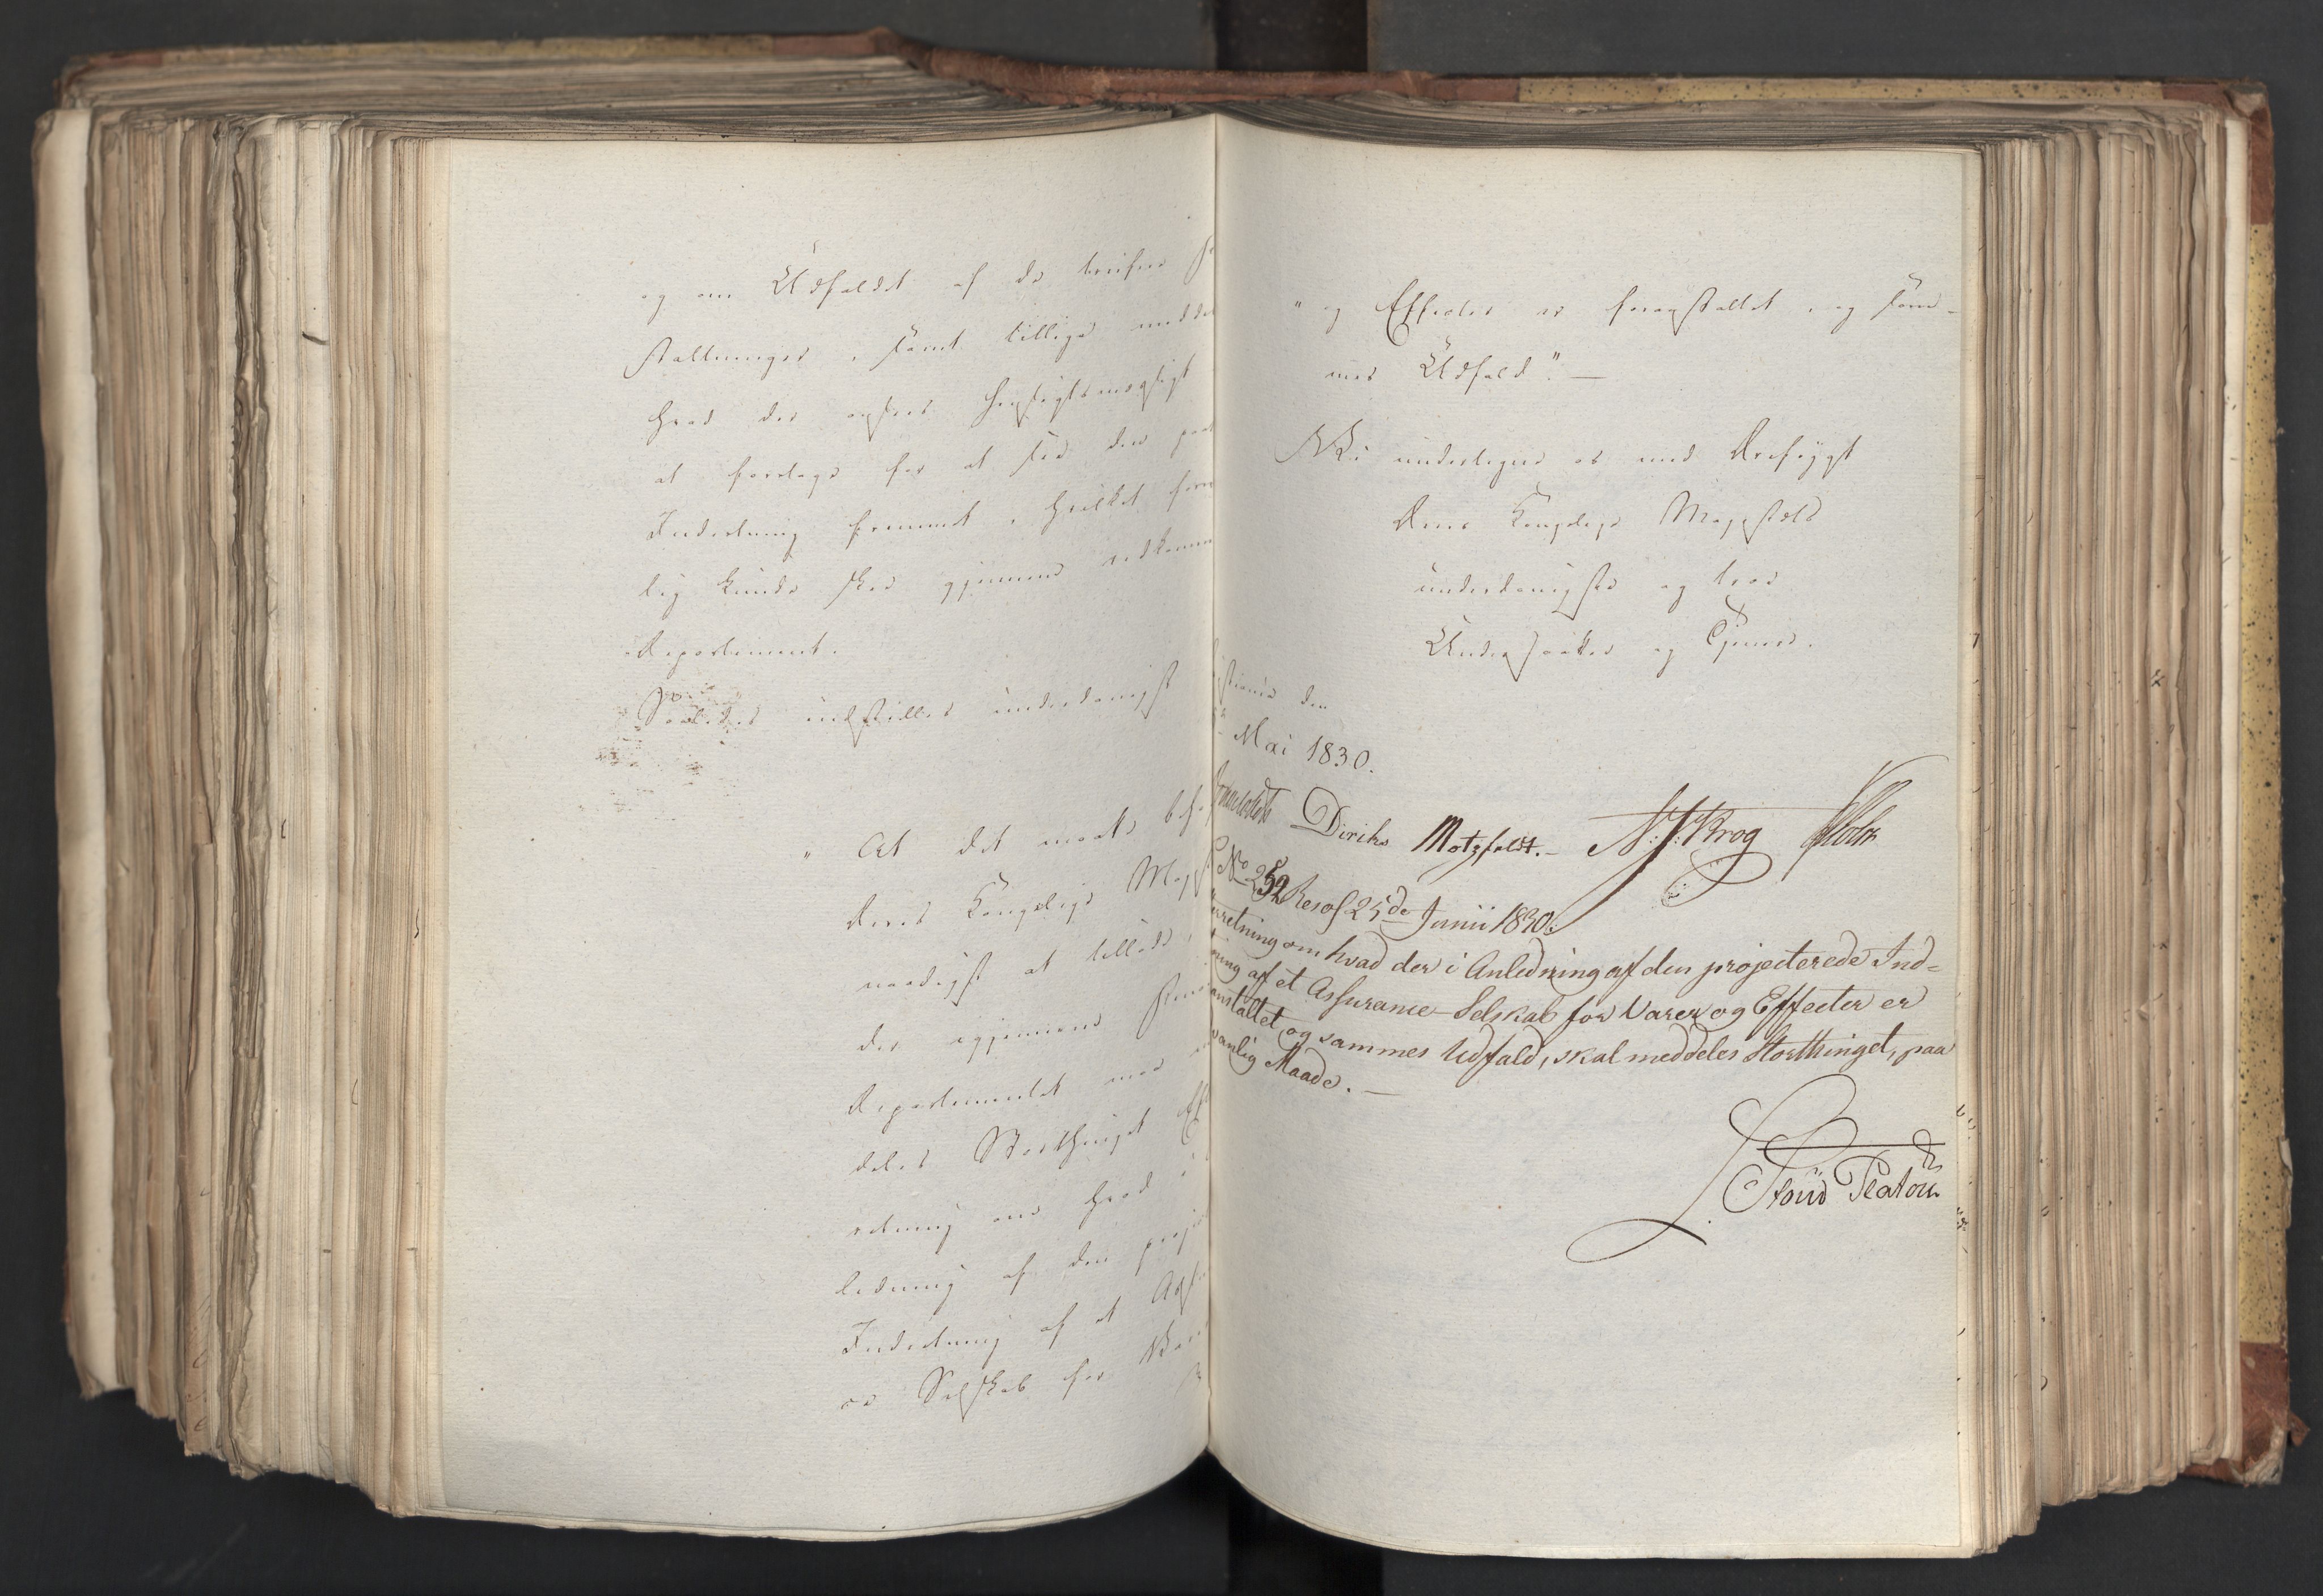 og om Udfaldet af de trufne
staltninger, samt tillige meddel
hvad der ansees hensigtsmæssigt
at foretage for at see den paa
Indretning fremmet, hvilket
lig kunde skee gjennem vedkomm
Departement.
Saaledes indstilles underdanigst
" At det maatte beh
Deres Kongelige Maj
naadigst at tillade,
der igjennem
Departementet maa
deles Storthinget Ef
retning om hvad i
ledning af den proje
Indretning af et Ass
ce Selskab for Va
" og Effecter er foranstaltet, og sam-
mes Udfald". —
Vi undertegne os med Ærefrygt
Deres Kongelige Majestæts
underdanigste og troe
Undersaatter og Tjenere.
stiania den
Mai 1830.
Diriks Motzfeldt. N. J. Krog Holst
No 252 Resol 25de Junii 1830:
erretning om hvad der i Anledning af den projecterede Ind=
ning af et Assurance-Selskab for Varer og Effecter er
anstaltet, og sammes Udfald, skal meddeles Storthinget, paa
vanlig Maade. —